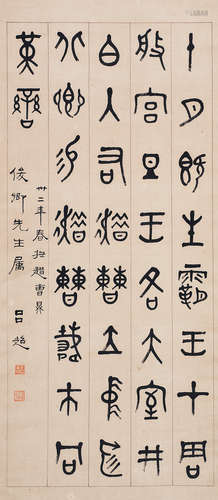 十月既生霸王才周
般宮旦王各大室井
白入右趞曹立中廷
北鄉易趞曹載巿冋
黃䜌
卅二年春趞曹鼎
俊卿先生屬
吕